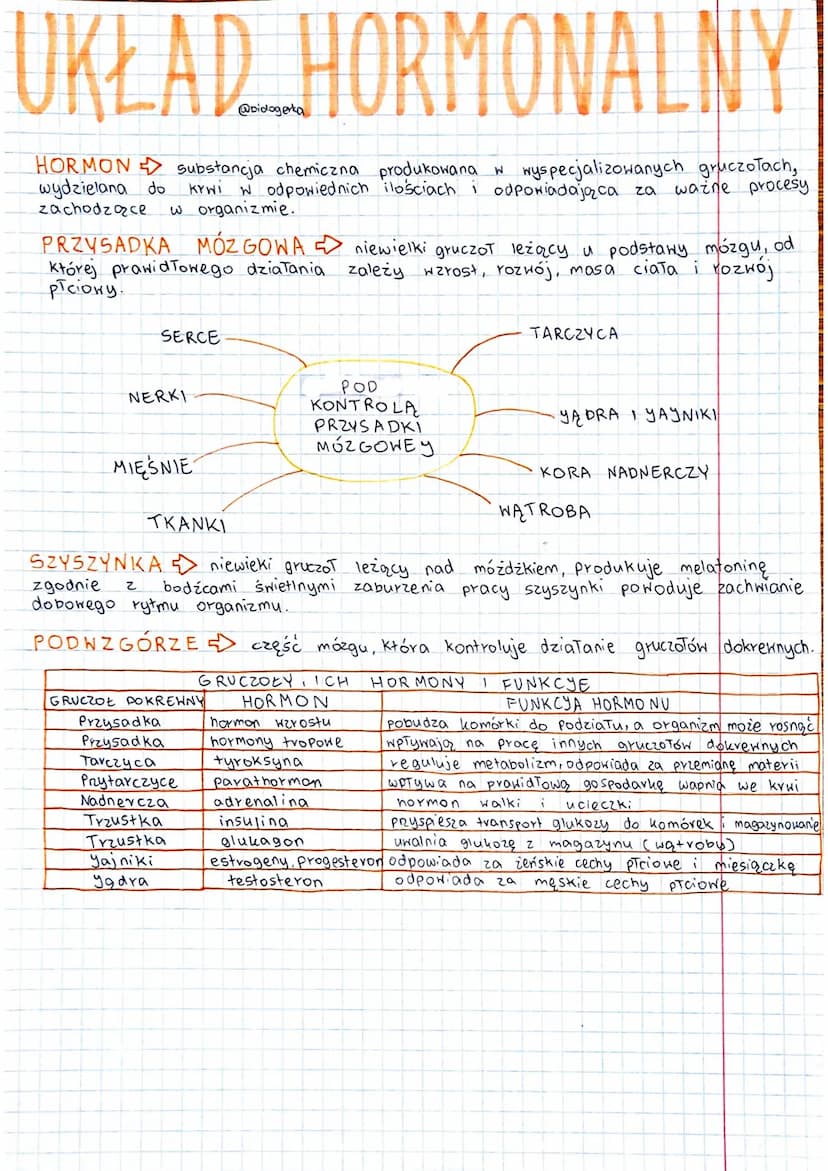 UKŁAD HORMONALNY
@biologerka
HORMON ⇨ substancja chemiczna produkowana w wyspecjalizowanych gruczołach,
wydzielana do krwi w odpowiednich ilościach i odpowiadająca za ważne procesy
zachodzące w organizmie.
PRZYSADKA MÓZGOWA ⇨ niewielki gruczoł leżący u podstawy mózgu, od
której prawidłowego działania zależy wzrost, rozwój, masa ciała i rozwój
płciowy.
SERCE
TARCZYCA
NERKI
POD
KONTROLĄ
PRZYSADKI
MÓZGOWEJ
JĄDRA I JAJNIKI
MIĘŚNIE
KORA NADNERCZY
TKANKI
WĄTROBA
SZYSZYNKA ⇨ niewieki gruczoł leżący nad móżdżkiem, produkuje melatoninę
zgodnie z bodźcami świetlnymi zaburzenia pracy szyszynki powoduje zachwianie
dobowego rytmu organizmu.
PODWZGÓRZE ⇨ część mózgu, która kontroluje działanie gruczołów dokrewnych.
GRUCZOŁY, ICH HORMONY I FUNKCJE
GRUCZOŁ DOKREWNY HORMON FUNKCJA HORMONU
Przysadka hormon wzrostu pobudza komórki do podziału, a organizm może rosnąć
Przysadka hormony tropowe wpływają na pracę innych gruczołów dokrewnych
Tarczyca tyroksyna reguluje metabolizm, odpowiada za przemianę materii
Przytarczyce parathormon wpływa na prawidłową gospodarkę wapnia we krwi
Nadnercza adrenalina hormon walki i ucieczki
Trzustka insulina przyspiesza transport glukozy do komórek i magazynowanie
Trzustka glukagon uwalnia glukozę z magazynu (wątroby)
Jajniki estrogeny, progesteron odpowiada za żeńskie cechy płciowe i miesiączkę
Jądra testosteron odpowiada za męskie cechy płciowe